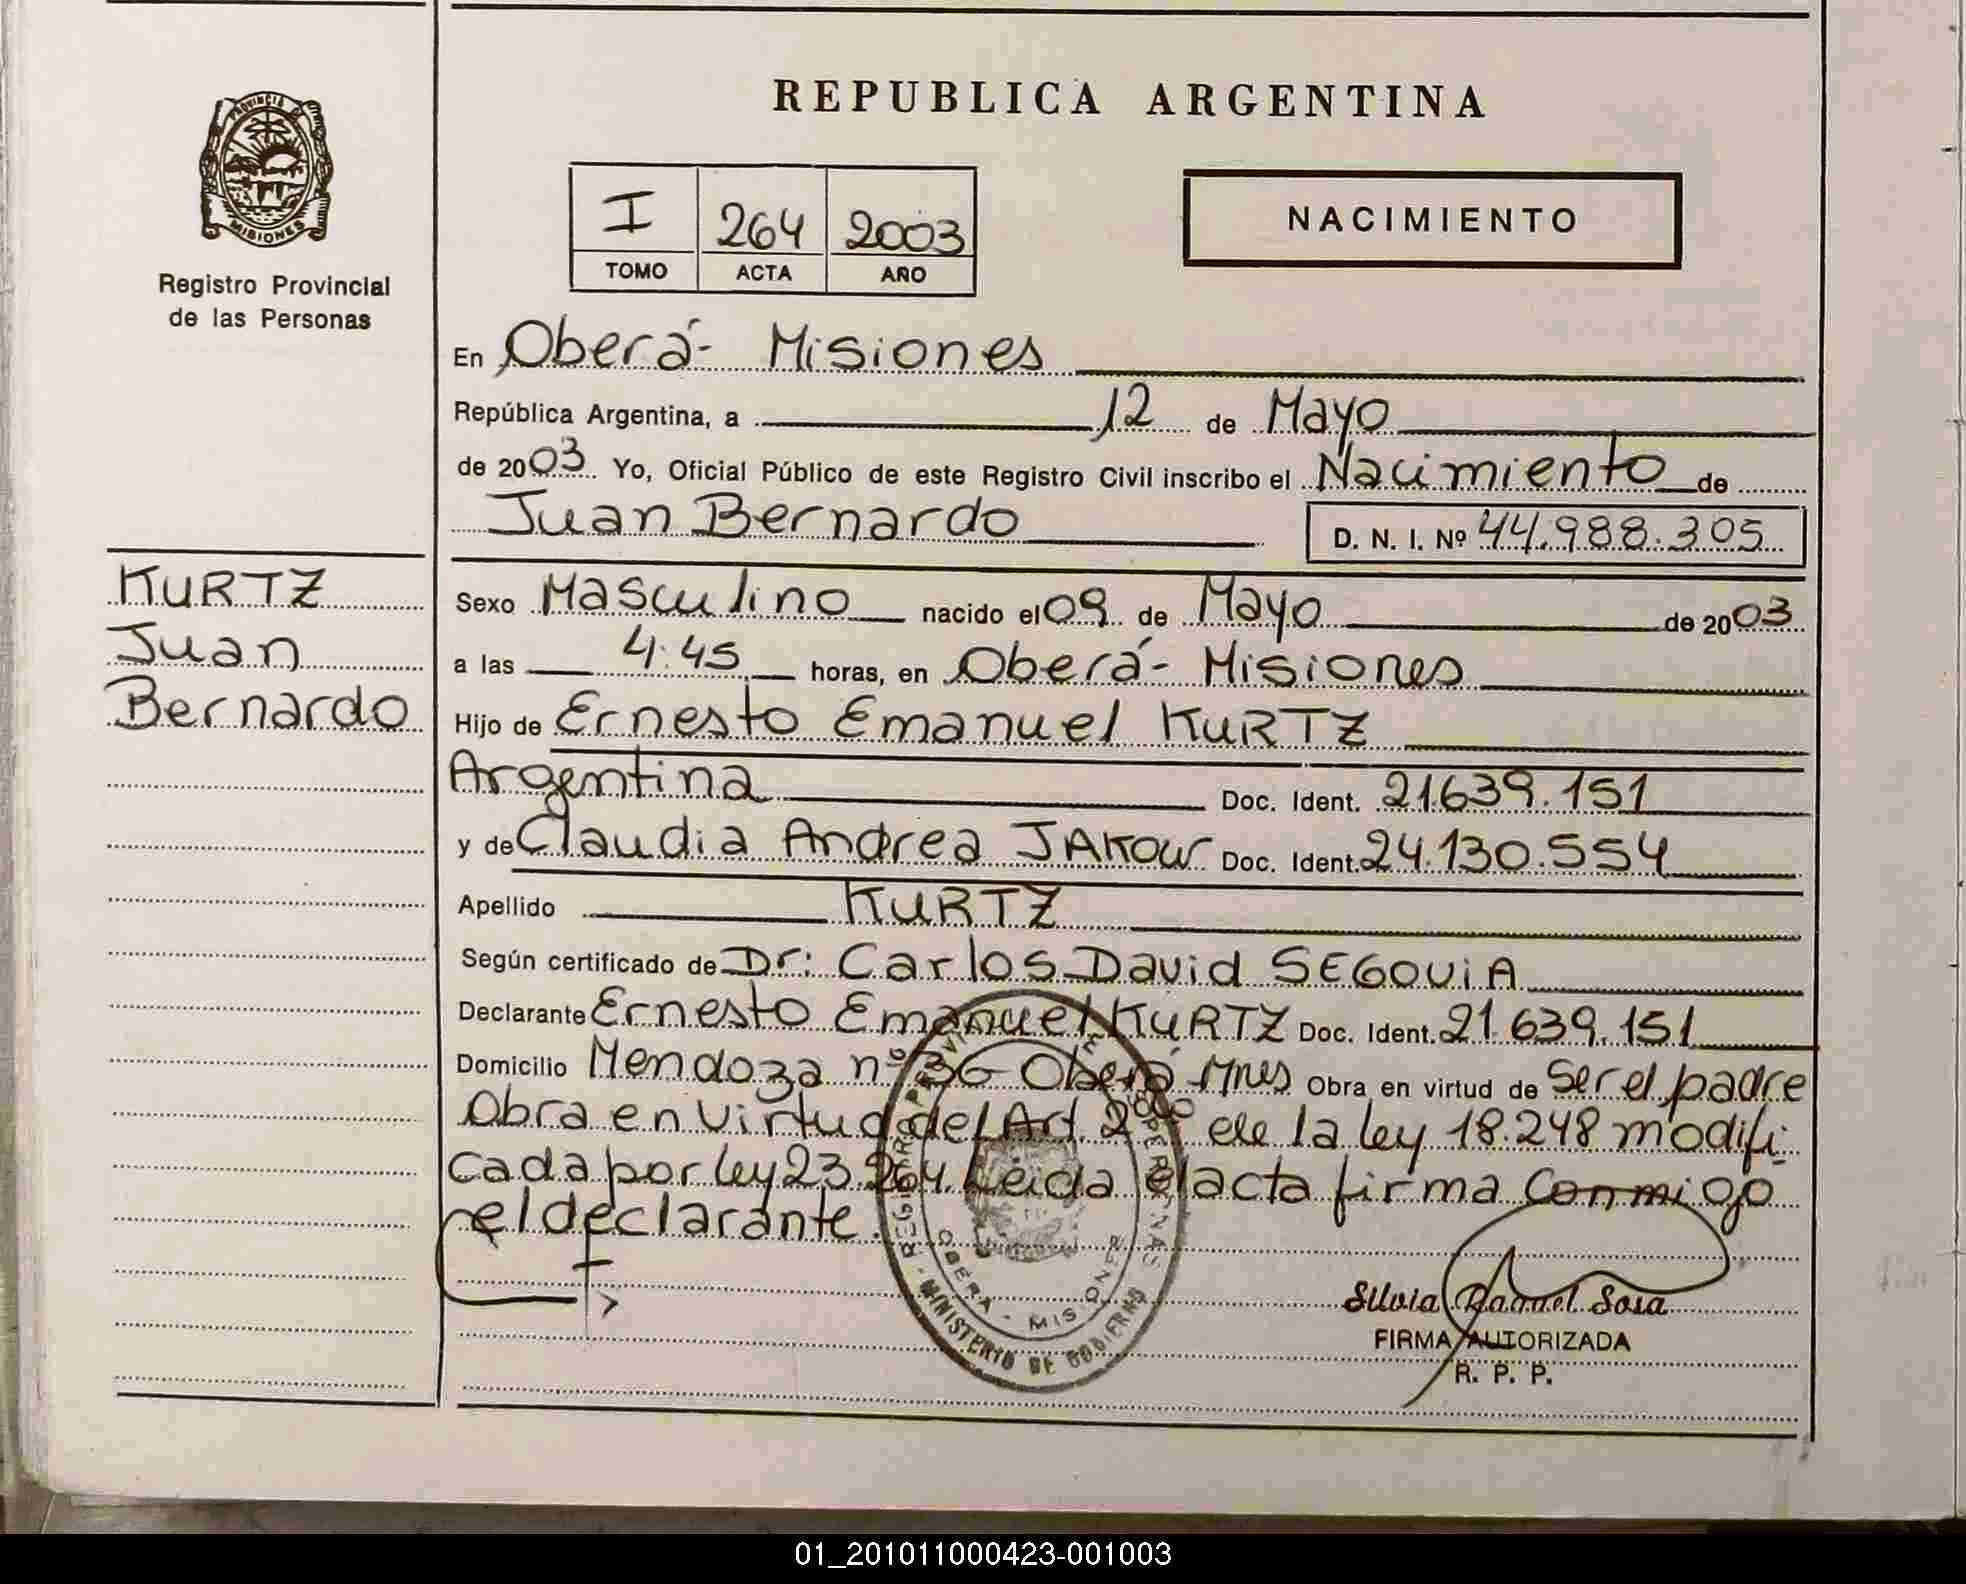 REPUBLICA ARGENTINA
PROVINCIA D
MISIONES
Registro Provincial
de las Personas
I 264 2003
TOMO ACTA AÑO
NACIMIENTO
En Oberá- Misiones
República Argentina, a 12 de Mayo
de 2003 Yo, Oficial Público de este Registro Civil inscribo el Nacimiento de
Juan Bernardo D. N. I. Nº 44.988.305
KURTZ
Juan
Bernardo
Sexo Masculino nacido el 09 de Mayo de 2003
a las 4:45 horas, en Oberá- Misiones
Hijo de Ernesto Emanuel KURTZ
Argentina Doc. Ident. 21.639.151
y de Claudia Andrea JAKOW Doc. Ident. 24.130.554
Apellido KURTZ
Según certificado de Dr: Carlos David SEGOVIA
Declarante Ernesto Emanuel KURTZ Doc. Ident. 21.639.151
Domicilio Mendoza nº 36 Oberá Mnes Obra en virtud de Ser el padre
Obra en virtud del Art. 2º de la ley 18.248 modifi
cada por ley 23.264. Leida el acta firma Conmigo
el declarante.
OBERA - MISIONES
MINISTERIO DE GOBIERNO
Silvia Raquel Sosa
FIRMA AUTORIZADA
R. P. P.
01_201011000423-001003